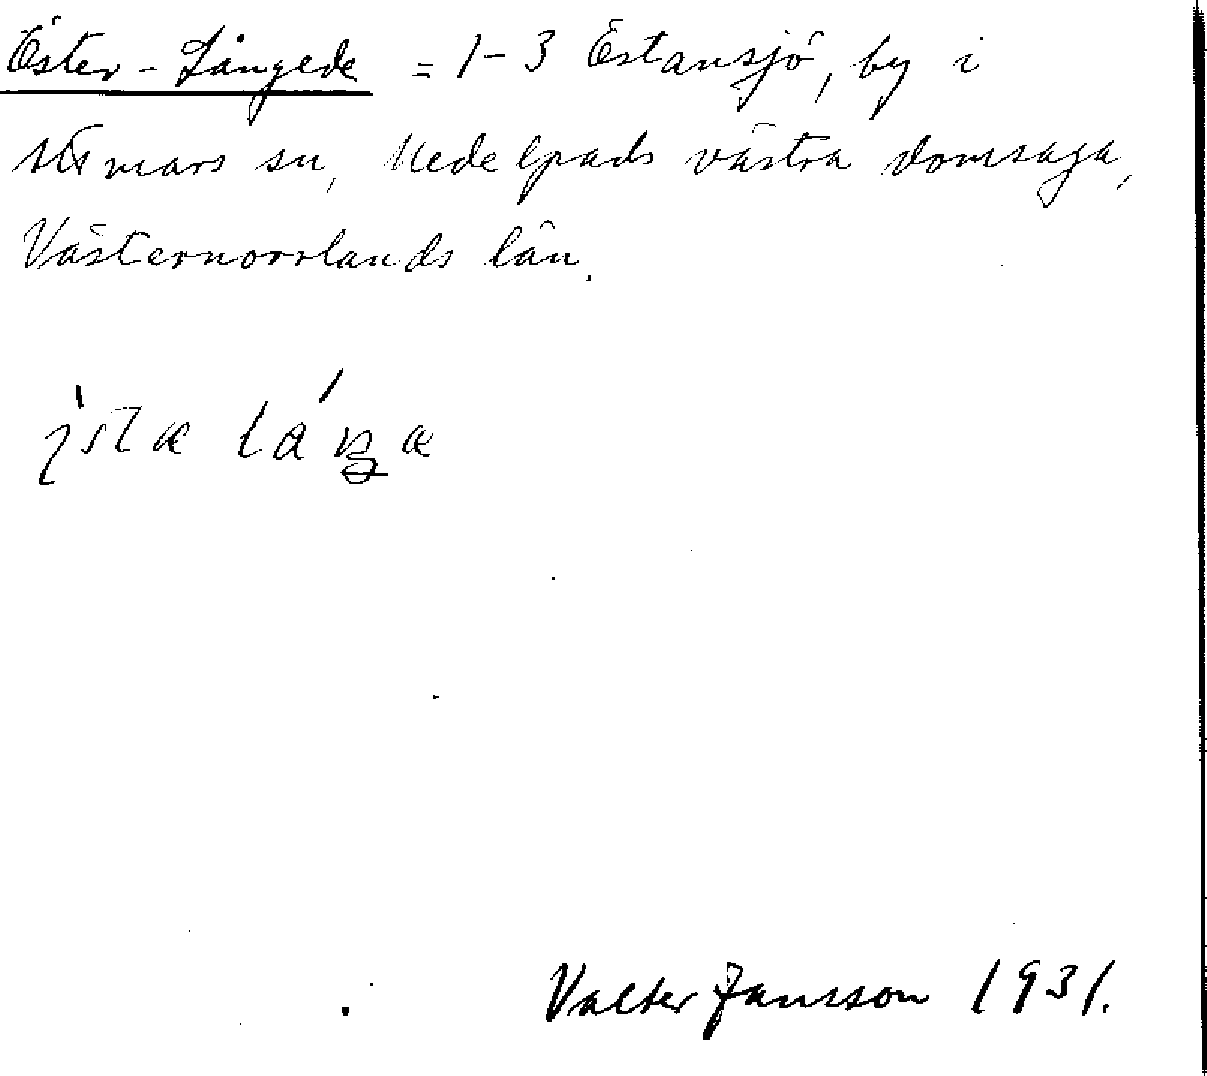 Öster-Långede = 1-3 Östansjö, by i
Attmars sn, Medelpads västra domsaga,
Västernorrlands län.
Valter Jansson 1931.